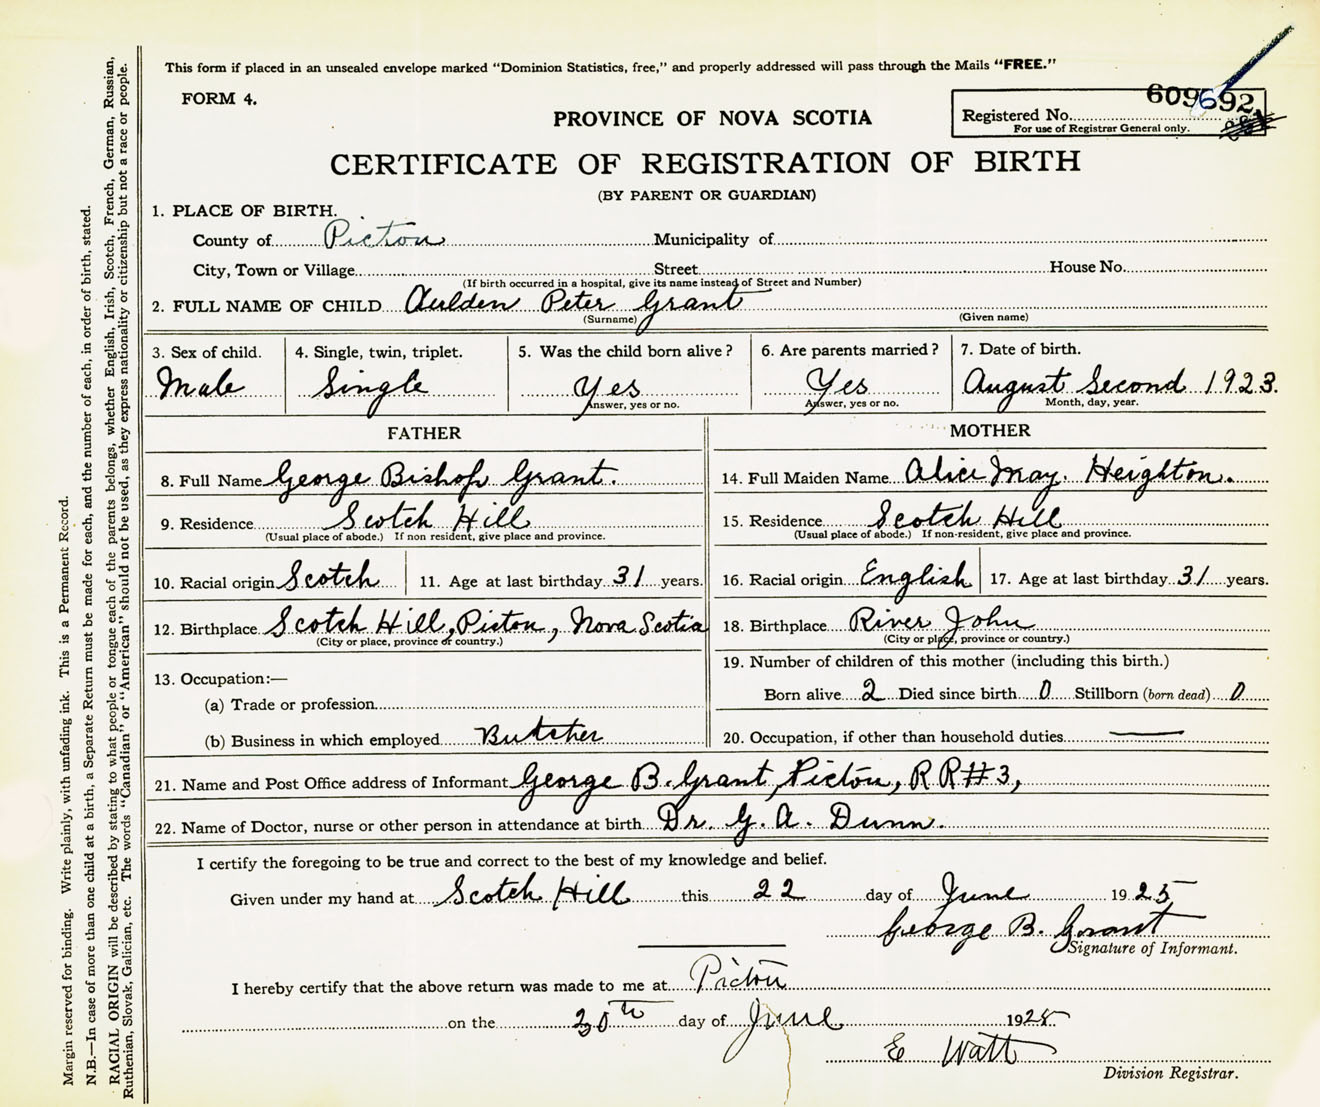 This form if placed in an unsealed envelope marked "Dominion Statistics, free," and properly addressed will pass through the Mails "FREE."
FORM 4.
PROVINCE OF NOVA SCOTIA
609692
Registered No.
For use of Registrar General only.
CERTIFICATE OF REGISTRATION OF BIRTH
(BY PARENT OR GUARDIAN)
1. PLACE OF BIRTH.
County of Pictou Municipality of
City, Town or Village Street House No.
(If birth occurred in a hospital, give its name instead of Street and Number)
2. FULL NAME OF CHILD Aulden Peter Grant
(Surname) (Given name)
3. Sex of child. 4. Single, twin, triplet. 5. Was the child born alive? 6. Are parents married? 7. Date of birth.
Male Single Yes Yes August Second 1923.
Answer, yes or no. Answer, yes or no. Month, day, year.
FATHER MOTHER
8. Full Name George Bishop Grant. 14. Full Maiden Name Alice May. Heighton.
9. Residence Scotch Hill 15. Residence Scotch Hill
(Usual place of abode.) If non resident, give place and province. (Usual place of abode.) If non-resident, give place and province.
10. Racial origin Scotch 11. Age at last birthday 31 years. 16. Racial origin English 17. Age at last birthday 31 years.
12. Birthplace Scotch Hill, Pictou, Nova Scotia 18. Birthplace River John
(City or place, province or country.) (City or place, province or country.)
19. Number of children of this mother (including this birth.)
13. Occupation:—
Born alive 2 Died since birth 0 Stillborn (born dead) 0
(a) Trade or profession
(b) Business in which employed Butcher 20. Occupation, if other than household duties —
21. Name and Post Office address of Informant George B. Grant, Pictou, R R # 3,
22. Name of Doctor, nurse or other person in attendance at birth Dr. G. A. Dunn.
I certify the foregoing to be true and correct to the best of my knowledge and belief.
Given under my hand at Scotch Hill this 22 day of June 1925
George B. Grant
Signature of Informant.
I hereby certify that the above return was made to me at Pictou
on the 30th day of June 1925
E Watt
Division Registrar.
Margin reserved for binding. Write plainly, with unfading ink. This is a Permanent Record.
N.B.—In case of more than one child at a birth, a Separate Return must be made for each, and the number of each, in order of birth, stated.
RACIAL ORIGIN will be described by stating to what people or tongue each of the parents belongs, whether English, Irish, Scotch, French, German, Russian,
Ruthenian, Slovak, Galician, etc. The words "Canadian" or "American" should not be used, as they express nationality or citizenship but not a race or people.